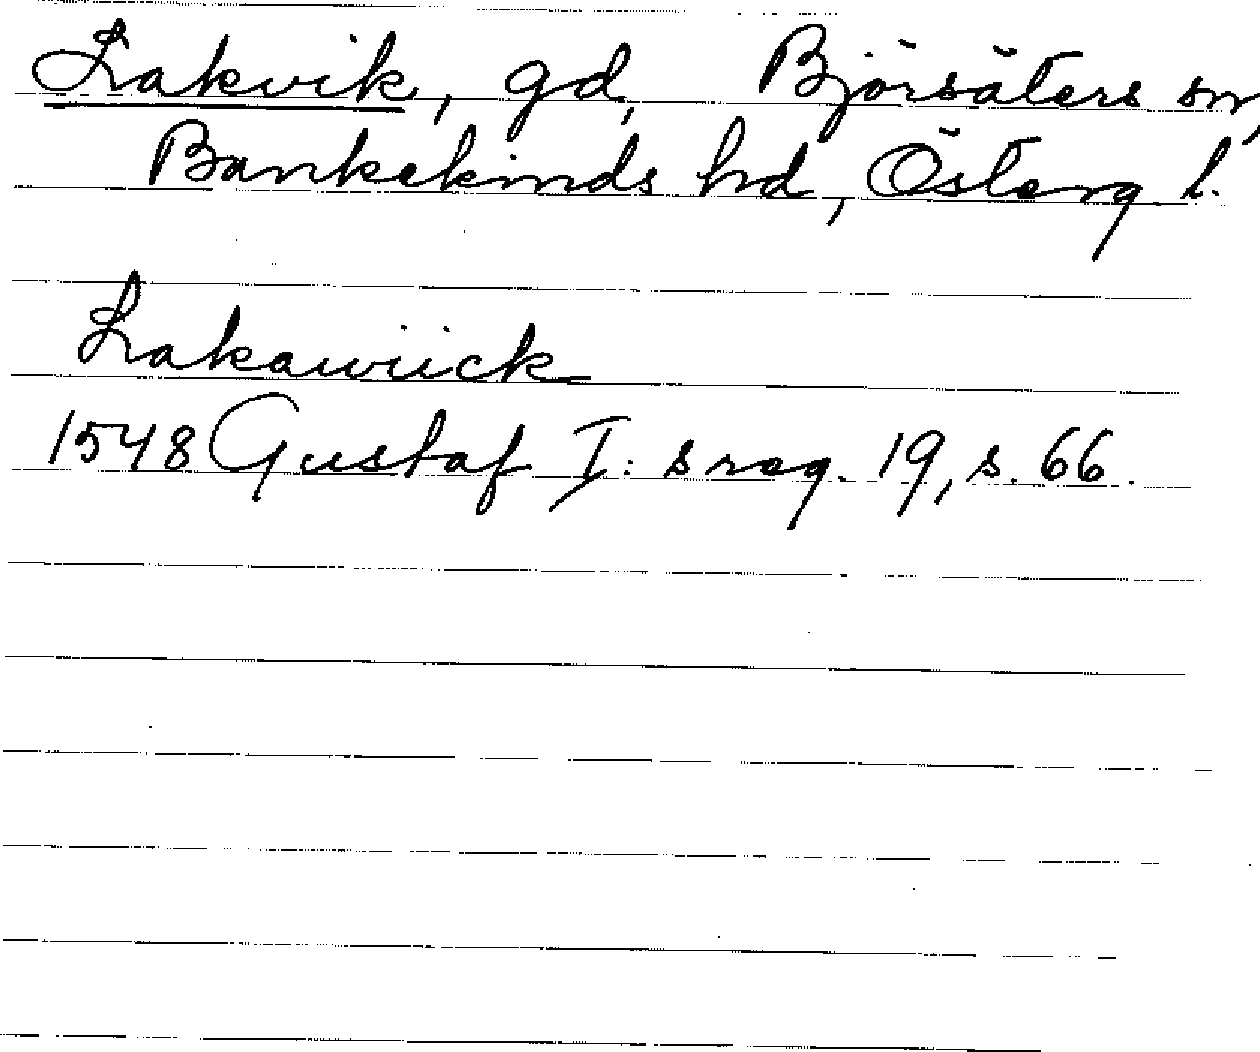 Lakvik, gd, Björsäters sn,
Bankekinds hd, Österg. l.
Lakawiick
1548 Gustaf I: s reg. 19, s. 66.